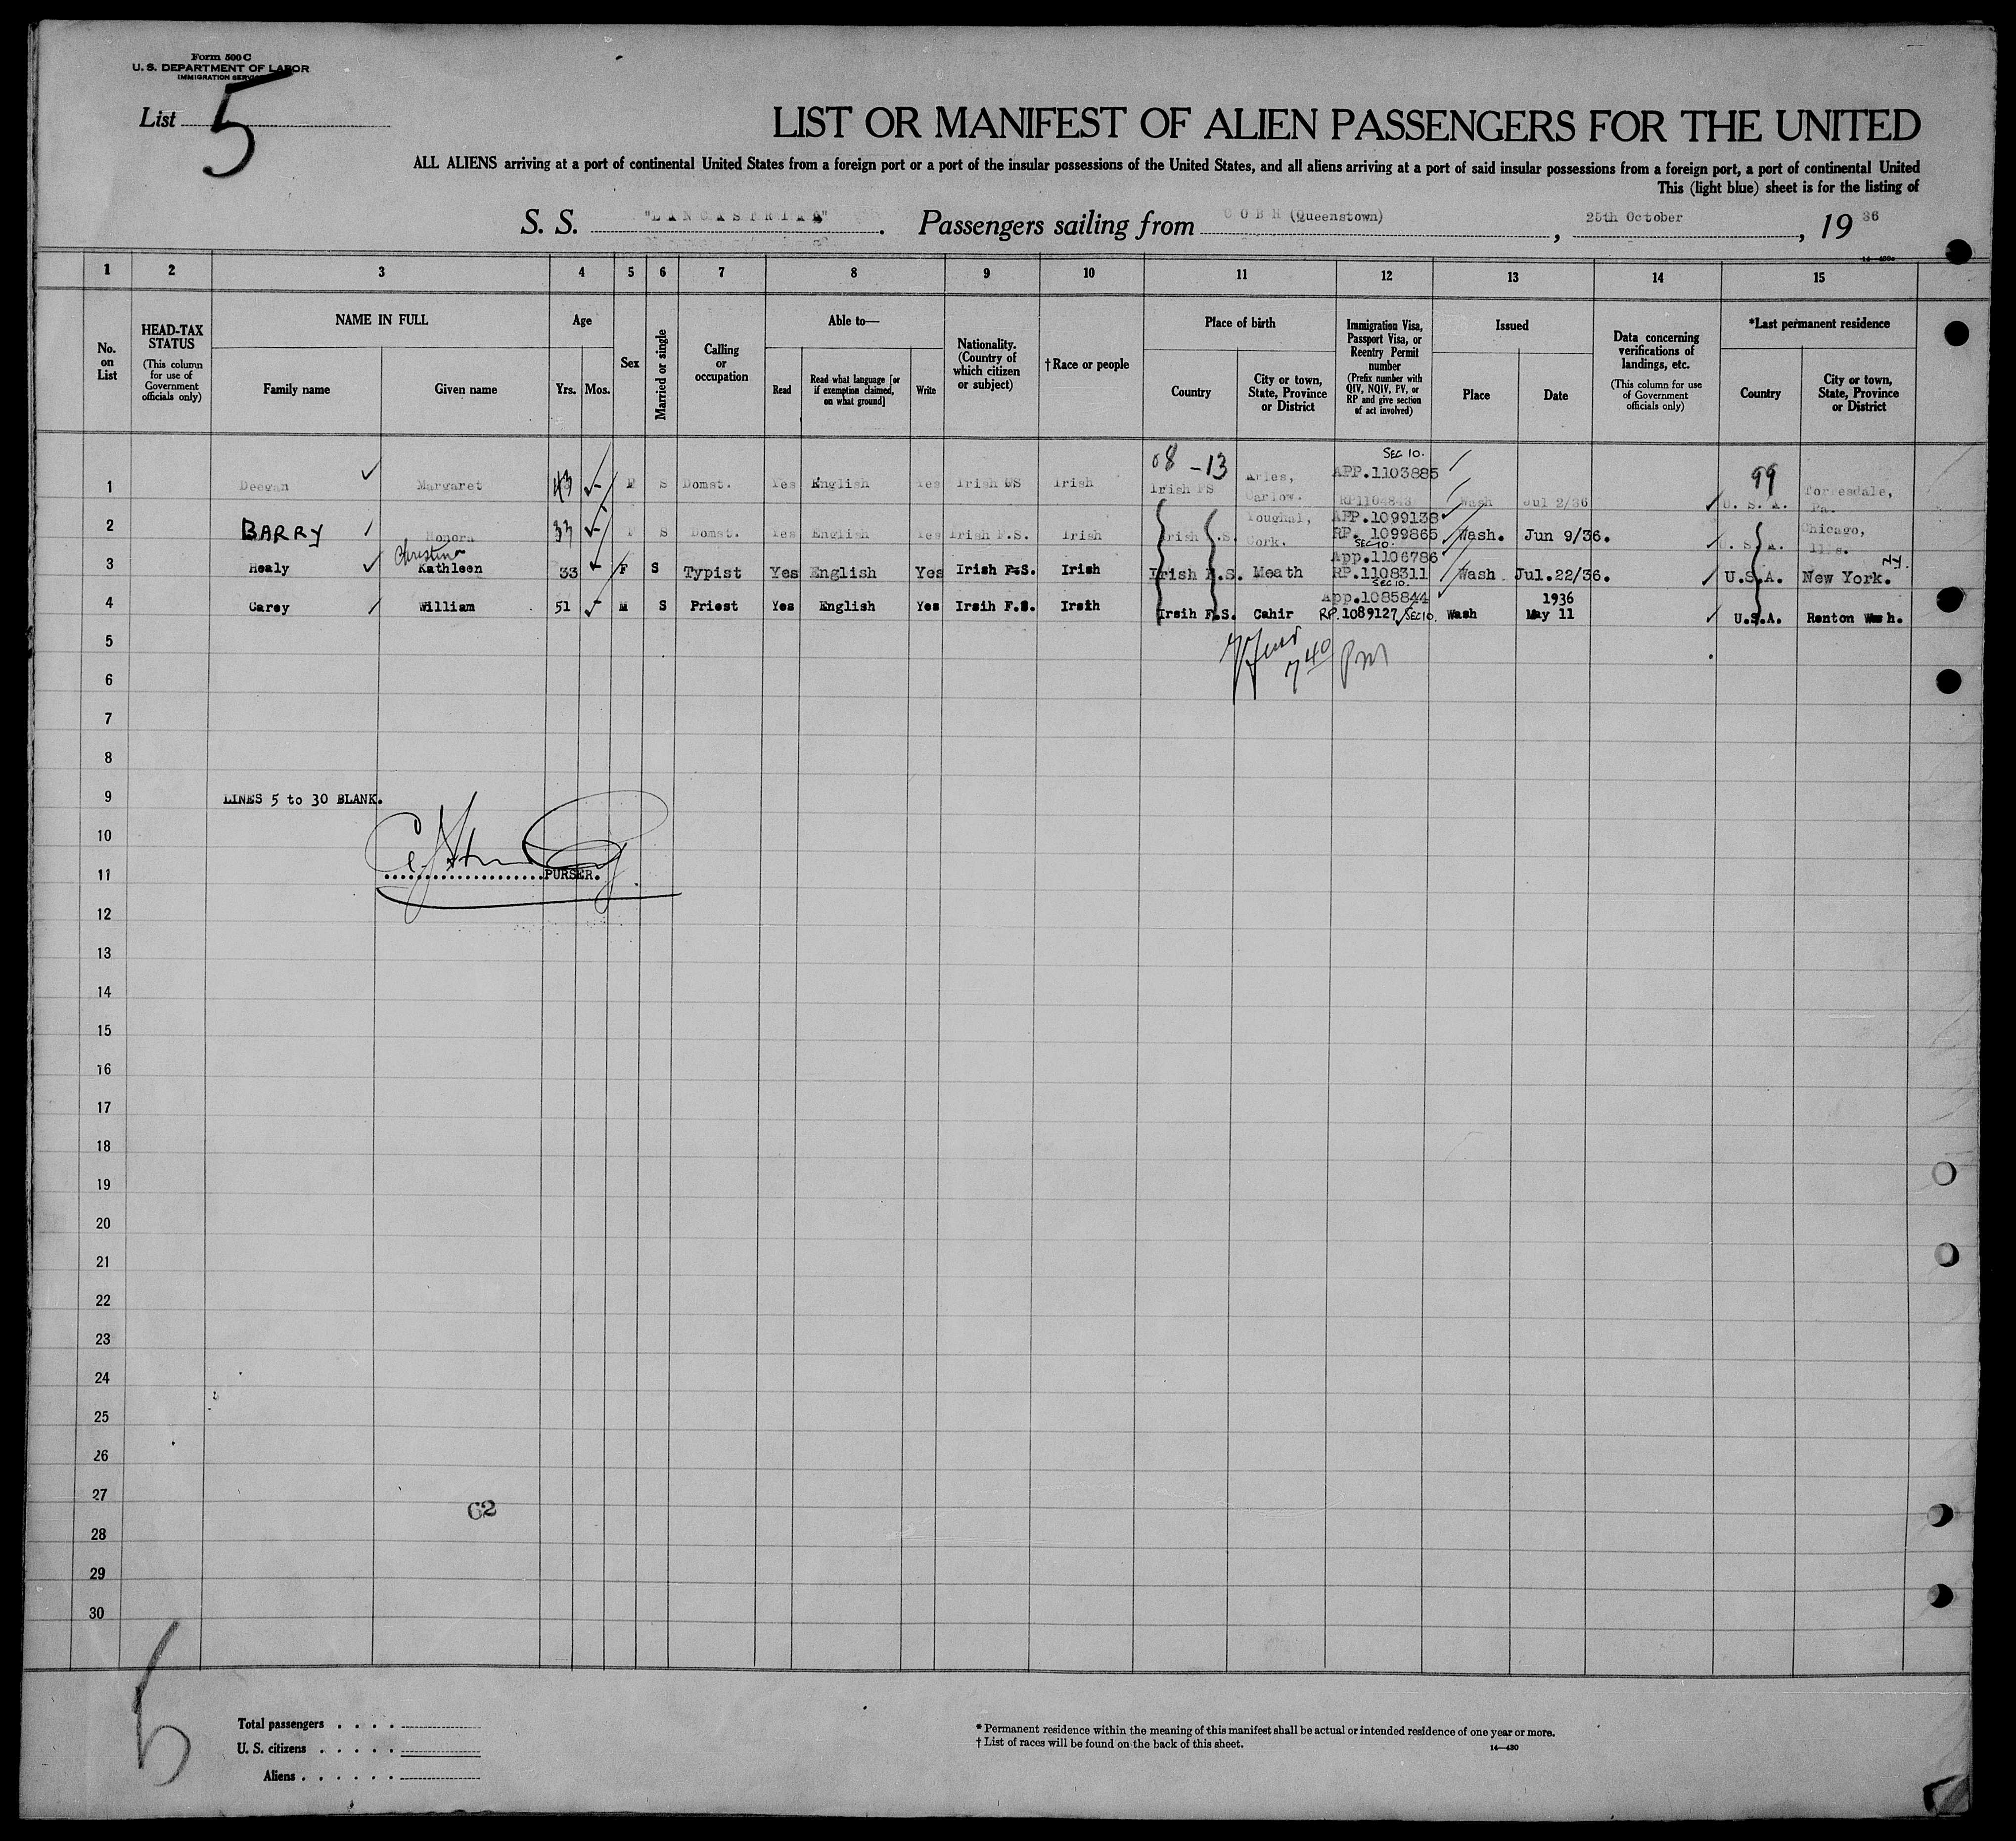 Form 500 C
U. S. DEPARTMENT OF LABOR
IMMIGRATION SERVICE
List 5
LIST OR MANIFEST OF ALIEN PASSENGERS FOR THE UNITED
ALL ALIENS arriving at a port of continental United States from a foreign port or a port of the insular possessions of the United States, and all aliens arriving at a port of said insular possessions from a foreign port, a port of continental United
This (light blue) sheet is for the listing of
S. S. "LANCASTRIA". Passengers sailing from COBH (Queenstown), 25th October, 19 36
1 2 3 4 5 6 7 8 9 10 11 12 13 14 15
No. on List
HEAD-TAX STATUS
(This column for use of Government officials only)
NAME IN FULL
Family name Given name
Age
Yrs. Mos.
Sex
Married or single
Calling or occupation
Able to—
Read
Read what language [or if exemption claimed, on what ground]
Write
Nationality. (Country of which citizen or subject)
†Race or people
Place of birth
Country
City or town, State, Province or District
Immigration Visa, Passport Visa, or Reentry Permit number
(Prefix number with QIV, NQIV, PV, or RP and give section of act involved)
Issued
Place Date
Data concerning verifications of landings, etc.
(This column for use of Government officials only)
*Last permanent residence
Country
City or town, State, Province or District
SEC 10.
08 -13 APP.1103885 99
1 Deegan Margaret 43 F S Domst. Yes English Yes Irish Irish Irish FS Arles, Carlow. Wash Jul 2/36 U. S. A. Torresdale, Pa.
APP.1099138
2 BARRY Honora 33 F S Domst. Yes English Yes Irish F.S. Irish Irish F.S. Youghal, Cork. RP. 1099865 Wash. Jun 9/36. U. S. A. Chicago, Ills.
SEC 10.
Christina App.1106786
3 Healy Kathleen 33 F S Typist Yes English Yes Irish F.S. Irish Irish F.S. Meath RP.1108311 Wash Jul.22/36. U.S.A. New York. NY.
SEC 10.
App.1085844 1936
4 Carey William 51 M S Priest Yes English Yes Irsih F.S. Irsih Irsih F.S. Cahir RP.1089127 SEC 10. Wash May 11 U.S.A. Renton Wash.
5
7 40 PM
6
7
8
9 LINES 5 to 30 BLANK.
10
11 PURSER.
12
13
14
15
16
17
18
19
20
21
22
23
24
25
26
27 62
28
29
30
Total passengers
U. S. citizens
Aliens
* Permanent residence within the meaning of this manifest shall be actual or intended residence of one year or more.
† List of races will be found on the back of this sheet.
14—430